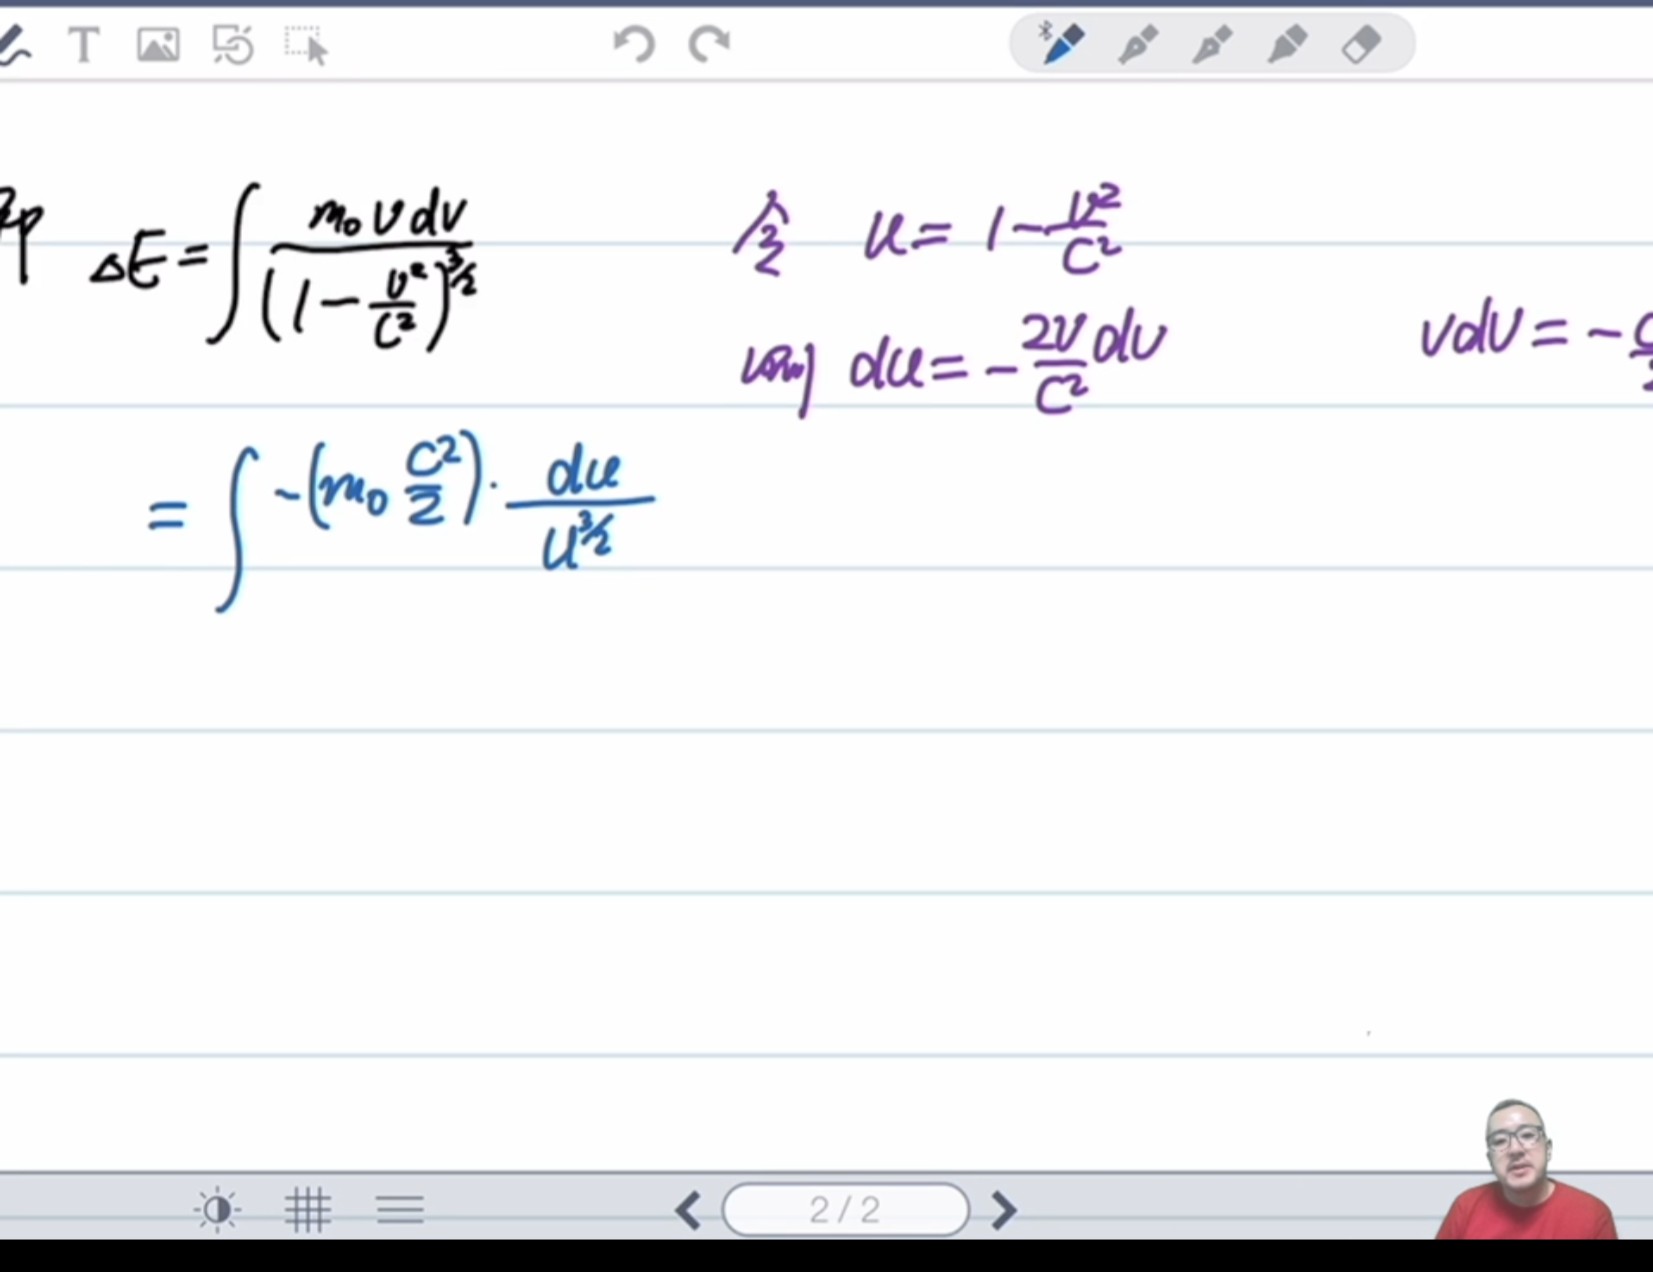 T
即 ΔE = ∫ m₀vdv / (1 - v²/c²)^(3/2)
令 u = 1 - v²/c²
则 du = - 2v/c² dv
vdv = -
= ∫ -(m₀ c²/2) · du / u^(3/2)
2 / 2